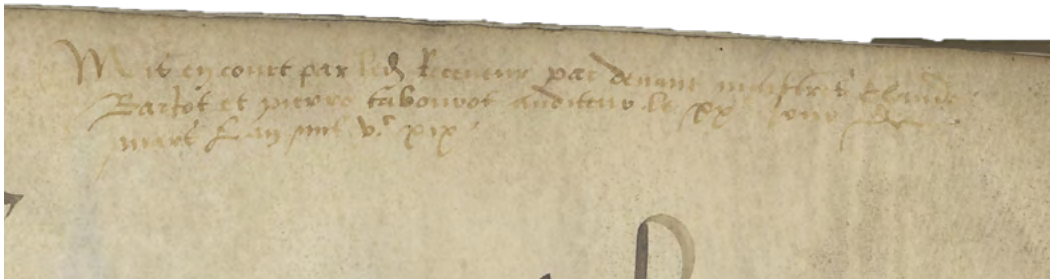 Mis en court par led. Receveur par devant maistres Claude
Barjot et pierre tabourot auditeur le xxe jour de
mars L'an mil vc xix